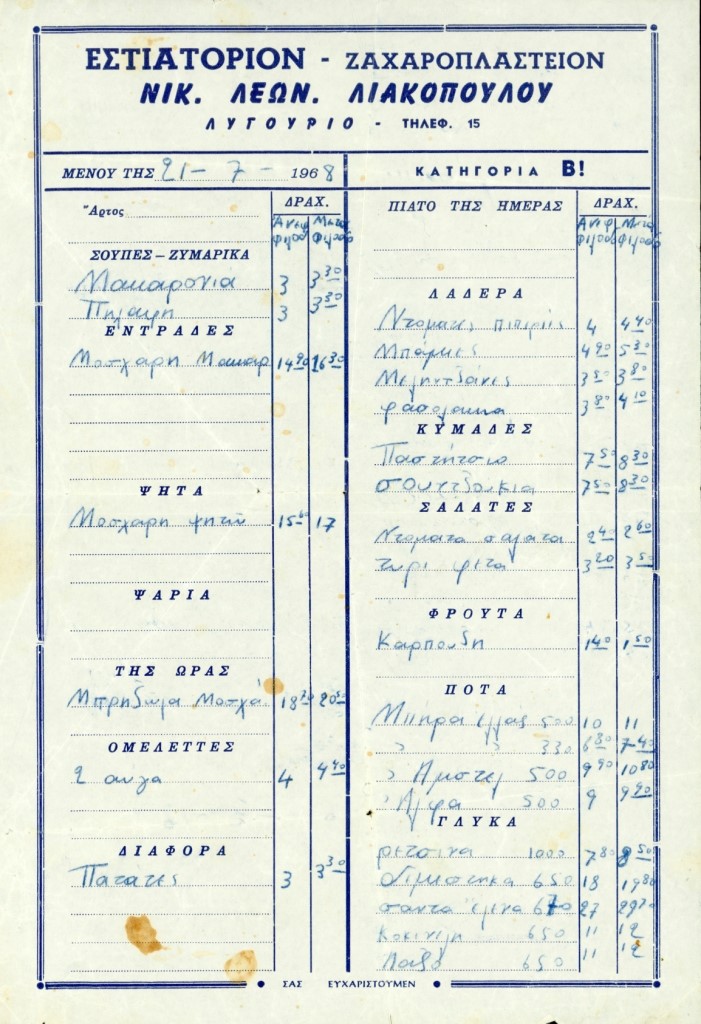 ΕΣΤΙΑΤΟΡΙΟΝ - ΖΑΧΑΡΟΠΛΑΣΤΕΙΟΝ
ΝΙΚ. ΛΕΩΝ. ΛΙΑΚΟΠΟΥΛΟΥ
ΛΥΓΟΥΡΙΟ - ΤΗΛΕΦ. 15
ΜΕΝΟΥ ΤΗΣ 21-7-1968
ΔΡΑΧ.
Ἄρτος
ΣΟΥΠΕΣ – ΖΥΜΑΡΙΚΑ
Μακαρονια 3 3 30
Πηλαφη 3 3 30
ΕΝΤΡΑΔΕΣ
Μοσχαρη Μακαρ 14 90 16 30
ΨΗΤΑ
Μοσχαρη ψητον 15 60 17
ΨΑΡΙΑ
ΤΗΣ ΩΡΑΣ
Μπρηζωλα Μοσχά 18 20 50
ΟΜΕΛΕΤΤΕΣ
2 αυγα 4 4 40
ΔΙΑΦΟΡΑ
Πατατες 3 3 30
ΚΑΤΗΓΟΡΙΑ Β!
ΠΙΑΤΟ ΤΗΣ ΗΜΕΡΑΣ
ΔΡΑΧ.
ΛΑΔΕΡΑ
Ντοματες πιπεριές 4 4 40
Μπάμιες 4 90 5 30
Μεληντζάνες 3 50 3 80
φασολακια 3 80 4 10
ΚΥΜΑΔΕΣ
Παστήτσιο 7 50 8 30
σουτζουκια 7 50 8 30
ΣΑΛΑΤΕΣ
Ντοματα σαλατα 2 40 2 60
τυρι φετα 3 20 3 50
ΦΡΟΥΤΑ
Καρπουζη 1 40 1 50
ΠΟΤΑ
Μπηρα 500 10 11
» » 330 6 80 7-40
» Αμστελ 500 9 90 10 80
» Αλφα 500 9 9 90
ΓΛΥΚΑ
ρετσινα 1000 7 80 8 50
Διμεστηκα 650 18 19 80
σαντα ελενα 670 27 29 70
Κοκινελη 650 11 12
650 11 12
ΣΑΣ ΕΥΧΑΡΙΣΤΟΥΜΕΝ